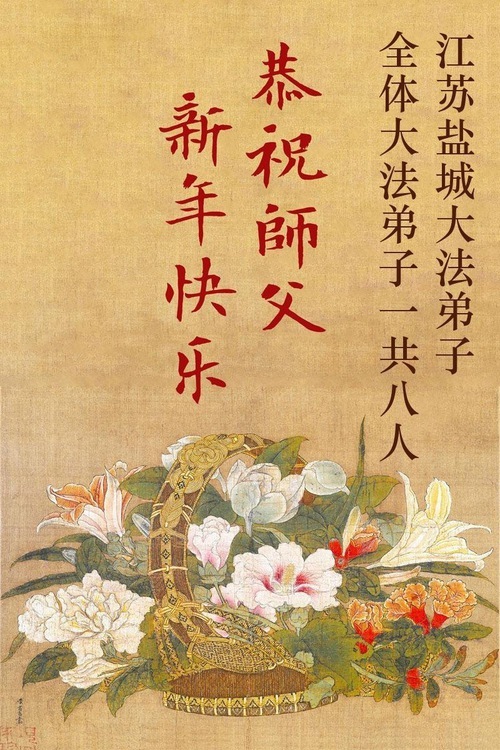 江苏盐城大法弟子
全体大法弟子一共八人
恭祝師父
新年快乐